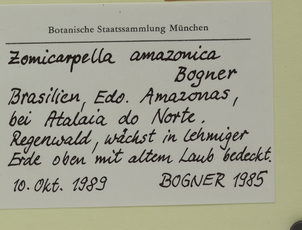 Botanische Staatssammlung München
Zomicarpella amazonica
Bogner
Brasilien, Edo. Amazonas,
bei Atalaia do Norte.
Regenwald, wächst in lehmiger
Erde oben mit altem Laub bedeckt.
10. Okt. 1989 BOGNER 1985